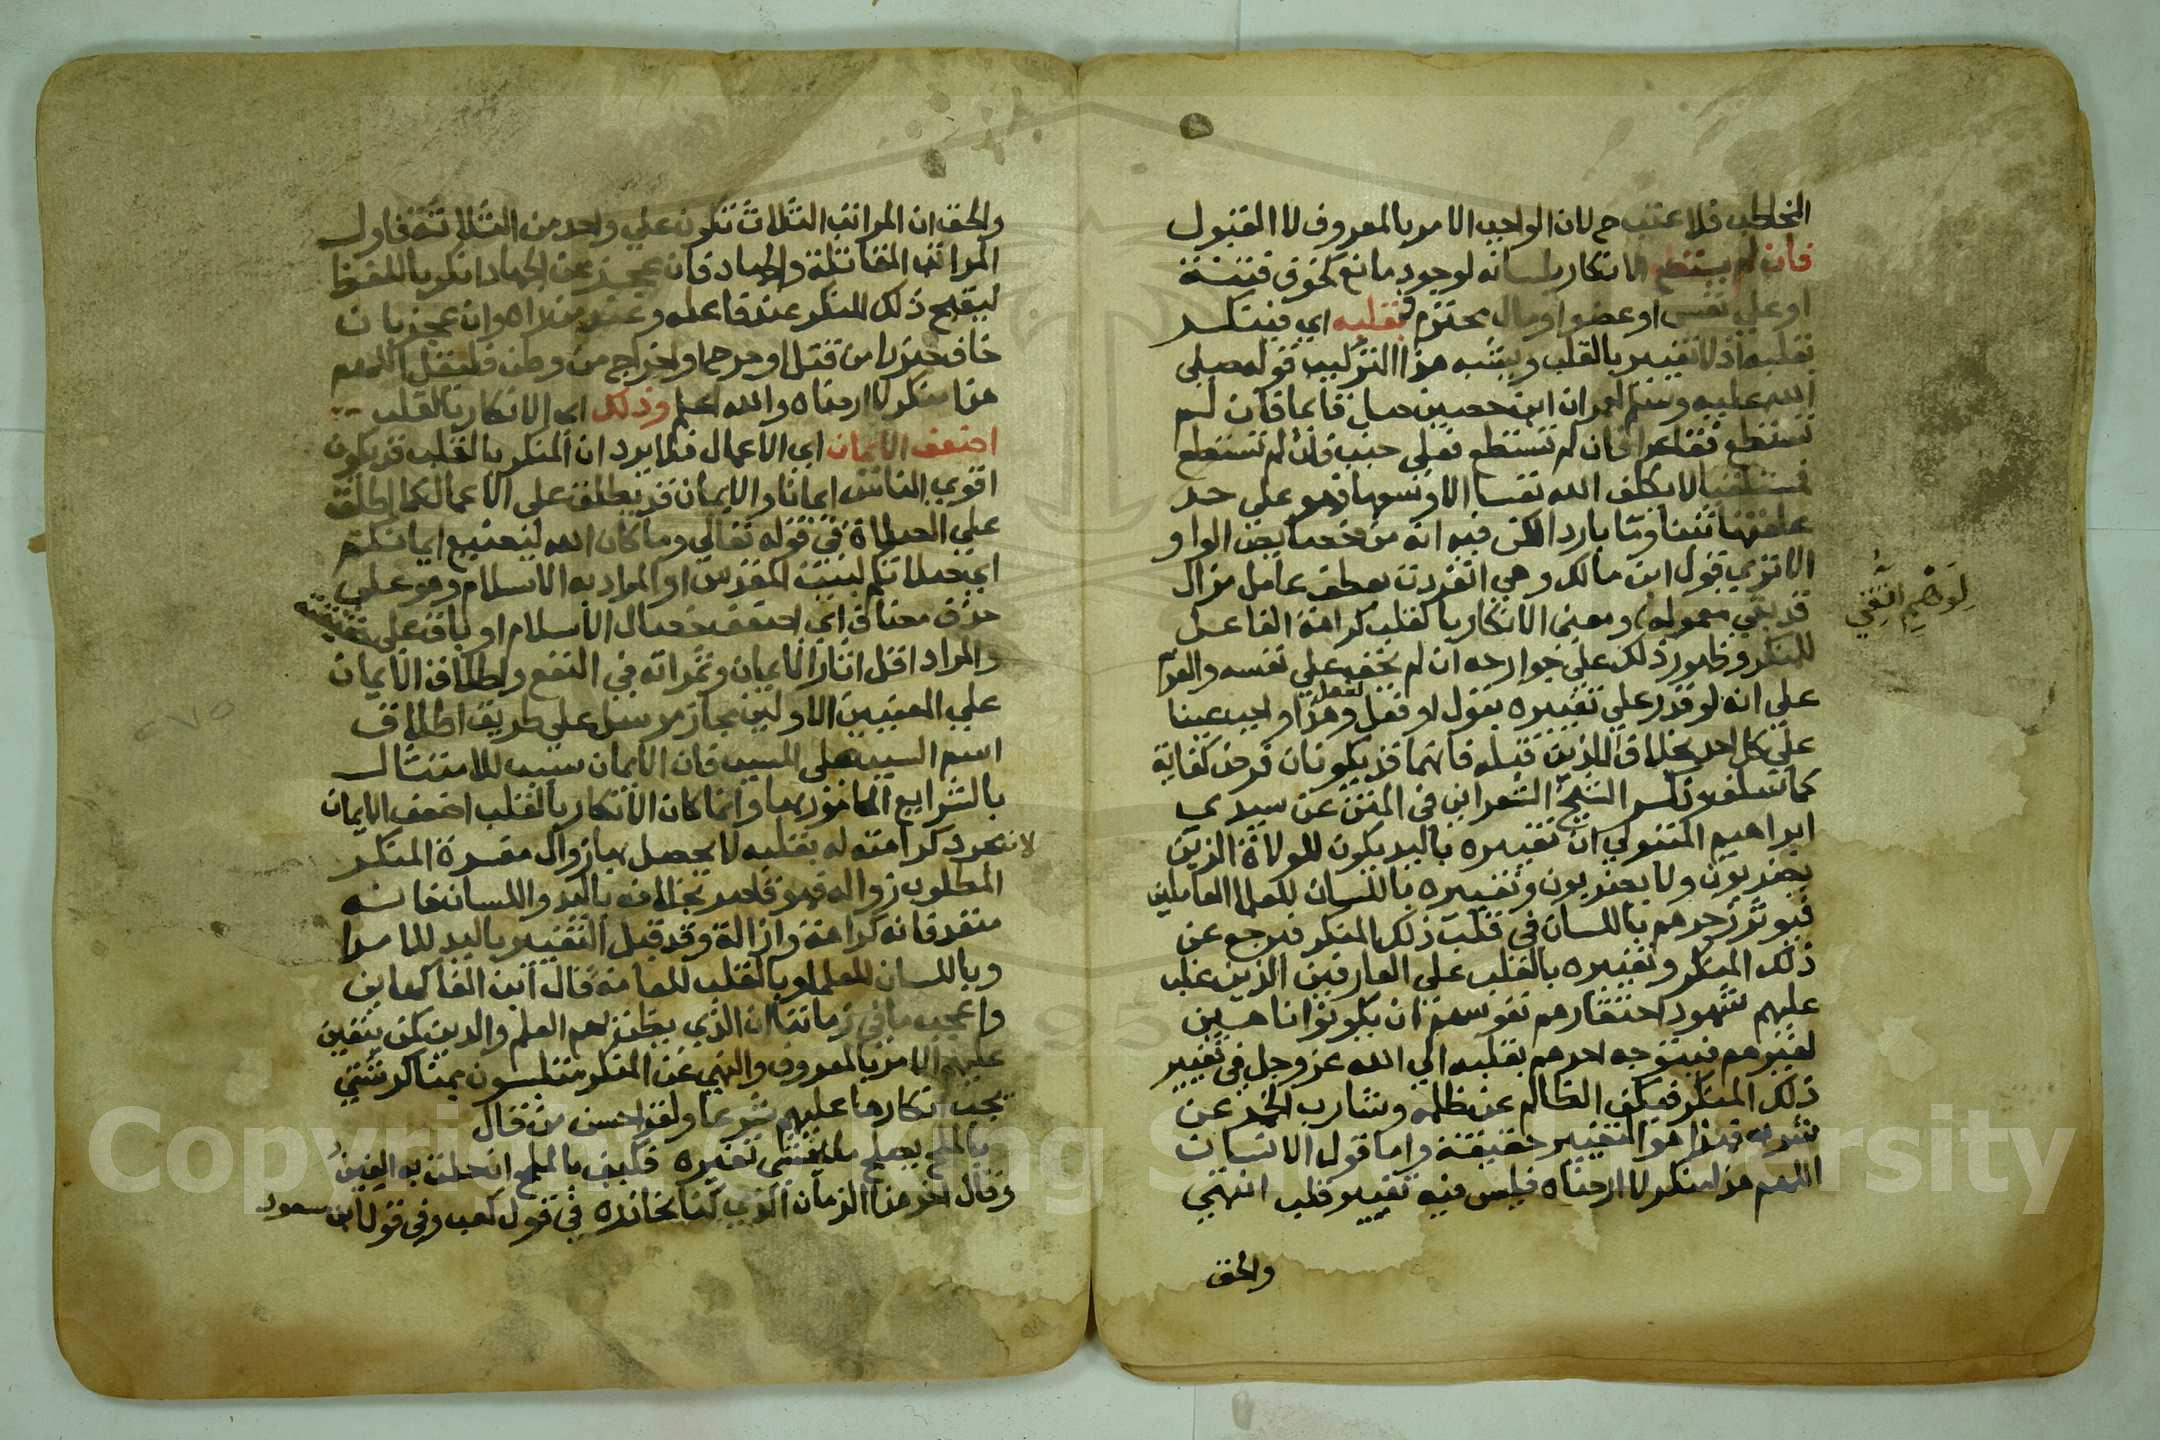 المخاطب فلا عتب ح لان الواجب الامر بالمعروف لا القبول
فان لم يستطع الانكار بلسانه لوجود مانع كخوف فتنة
او علي نفس او عضو او مال محترم فبقلبه اي فينكر
بقلبه اذ لا تغيير بالقلب ويشبه هذا التركيب قوله صلي
الله عليه وسلم لعمران ابن حصين صل قائما فان لم
تستطع فقاعدا فان لم تستطع فعلي جنب فان لم تستطع
فمستلقيا لا يكلف الله نفسا الا وسعها فهو علي حد
علفتها تبنا وماء باردا لكن فيه انه من خصايص الواو
الا تري قول ابن مالك وهي انفردت بعطف عامل مزال
قد بقي معموله ومعني الانكار بالقلب كراهة الفاعل
لوهم اتقي
للمنكر وظهور ذلك علي جوارحه ان لم يخف علي نفسه والعزم
علي انه لو قدر علي تغييره بقول او فعل لفعل وهذا واجب عينا
علي كل احد بخلاف اللذين قبله فانهما قد يكونان فرض كفاية
كما سلف وذكر الشيخ الشعراني في المنن عن سيدي
ابراهيم المتبولي ان تغييره باليد يكون للولاة الذين
يضربون ولا يضربون وتغييره باللسان للعلما العاملين
فيوثر زجرهم باللسان في قلب ذلك المنكر فيرجع عن
ذلك المنكر وتغييره بالقلب علي العارفين الذين غلب
عليهم شهود احتقارهم نفوسهم ان يكونوا ناهين
لغيرهم فيتوجه احدهم بقلبه الي الله عز وجل في تغيير
ذلك المنكر فيكف الظالم عن ظلمه وشارب الخمر عن
شربه فهذا هو التغيير حقيقة واما قول الانسان
اللهم هذا منكر لا ارضاه فليس فيه تغيير قلب انتهي
والحق
والحق ان المراتب الثلاث تكون علي واحد من الثلاثة فاول
المراتب المقاتلة والجهاد فان عجز عن الجهاد انكر باللفظ
ليقبح ذلك المنكر عند فاعله وعند من راه وان عجز بان
خاف ضررا من قتل او جرح او اخراج من وطن فليقل اللهم
هذا منكر لا ارضاه والله اعلم وذلك اي الانكار بالقلب
اضعف الايمان اي الاعمال فلا يرد ان المنكر بالقلب قد يكون
اقوي الناس ايمانا والايمان قد يطلق علي الاعمال كما اطلق
علي الصلاة في قوله تعالي وما كان الله ليضيع ايمانكم
اي صلاتكم لبيت المقدس او المراد به الاسلام وهو علي
حذف مضاف اي اضعف خصال الاسلام او باق علي حقيقته
والمراد اقل اثار الايمان وثمراته في النفع واطلاق الايمان
علي المعنيين الاولين مجاز مرسل علي طريق اطلاق
اسم السبب علي المسبب فان الايمان سبب للامتثال
بالشرايع المامور بها وانما كان الانكار بالقلب اضعف الايمان
لان مجرد كراهته له بقلبه لا يحصل بها زوال مفسدة المنكر
المطلوب زواله فهو قاصر بخلافه باليد واللسان فانه
متعد فانه كراهة وازالة وقد قيل التغيير باليد للامرا
وباللسان للعلما وبالقلب للعامة قال ابن الفاكهاني
واعجب ما في زماننا ان الذي يظن لهم العلم والدين كمن يتعين
عليهم الامر بالمعروف والنهي عن المنكر متلبسون بمناكر شتي
يجب انكارها عليهم شرعا ولقد احسن من قال
بالملح يصلح ما يخشي تغيره فكيف بالملح ان حلت به الغير
وقال اخر هذا الزمان الذي كنا نحاذره في قول كعب وفي قول ابن مسعود